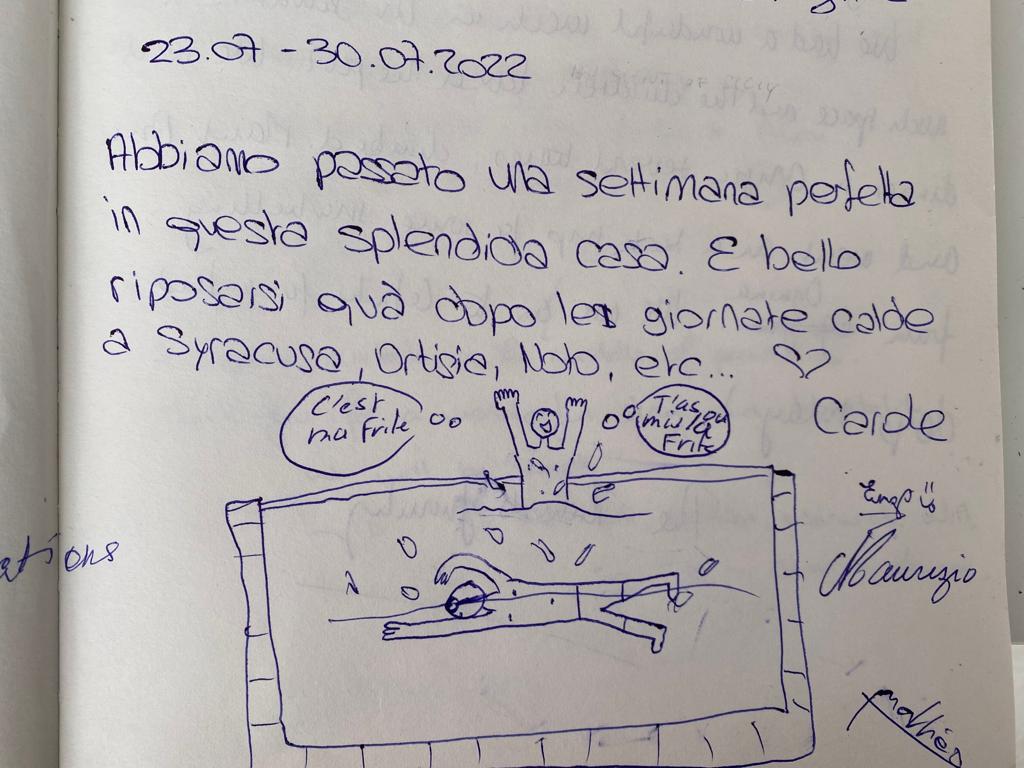 23.07 - 30.07.2022
Abbiamo passato una settimana perfetta
in questa splendida casa. E bello
riposarsi quà dopo les giornate calde
a Syracusa, Ortisia, Noto, etc... ♡
C'est
ma frite
T'as ou
mis la
Frite
Carde
Enzo
Maurizio
ations
Mathéo